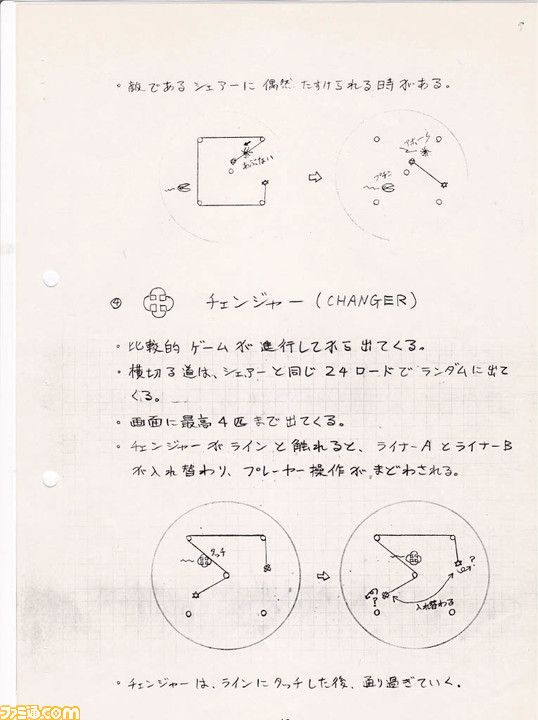 ・敵であるシェアーに偶然たすけられる時がある。
あぶない
プチン
④ チェンジャー(CHANGER)
・比較的ゲームが進行してから出てくる。
・横切る道は、シェアーと同じ24ロードでランダムに出て
くる。
・画面に最高4匹まで出てくる。
・チェンジャーがラインと触れると、ライナーAとライナーB
が入れ替わり、プレーヤー操作がまどわされる。
タッチ
?
?
入れ替わる
・チェンジャーは、ラインにタッチした後、通り過ぎていく。
ファミ通.com